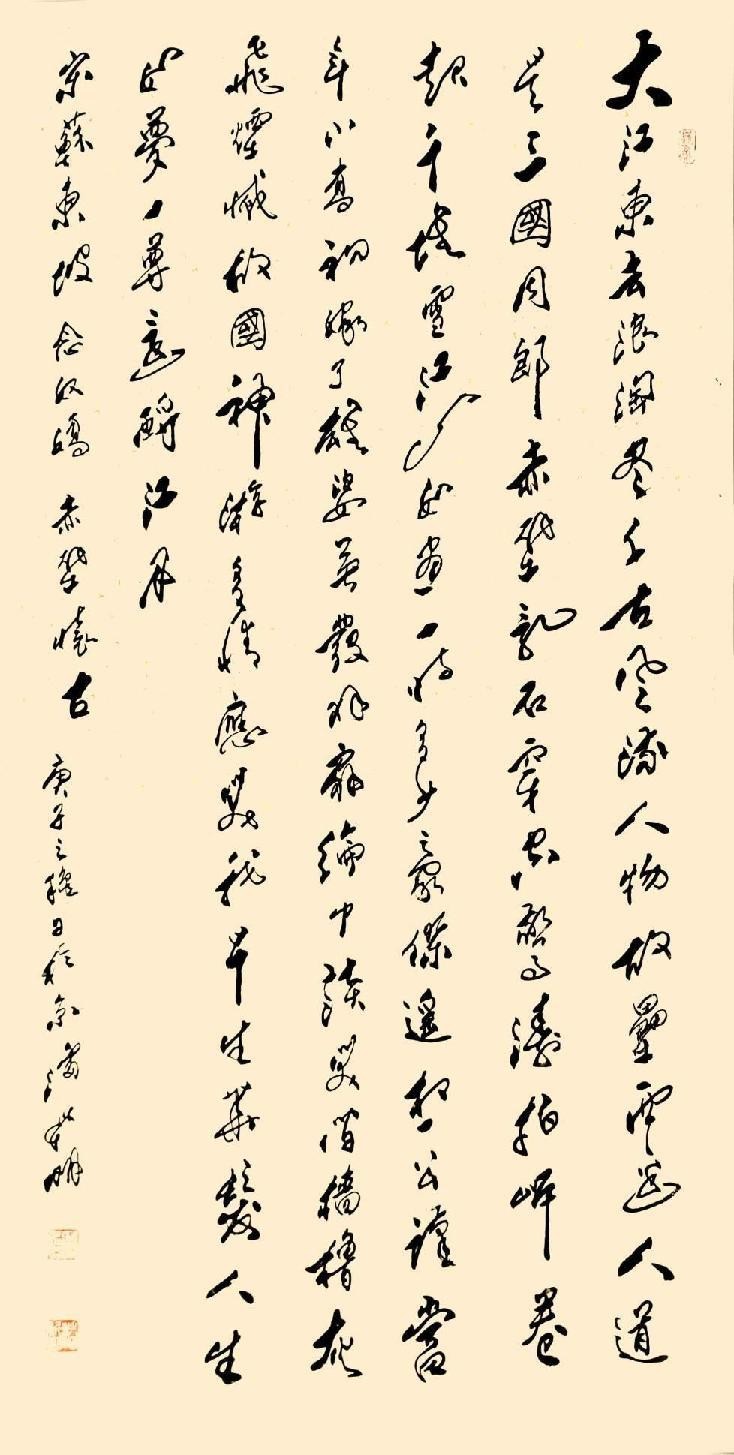 大江東去浪淘盡千古風流人物故壘西邊人道
是三國周郎赤壁亂石穿空驚濤拍岸卷
起千堆雪江山如畫一時多少豪傑遙想公謹當
年小喬初嫁了雄姿英發羽扇綸巾談笑間檣櫓灰
飛煙滅故國神游多情應笑我早生華髮人生
如夢一尊還酹江月
宋蘇東坡 念奴嬌 赤壁懷古 庚子之穐日於京